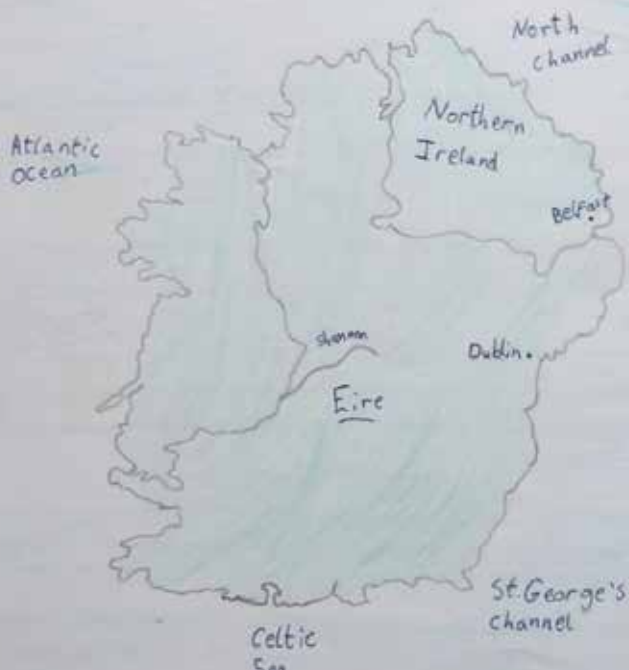 North
channel
Atlantic
ocean
Northern
Ireland
Belfast
Shannon
Dublin
Eire
St. George's
channel
Celtic
Sea